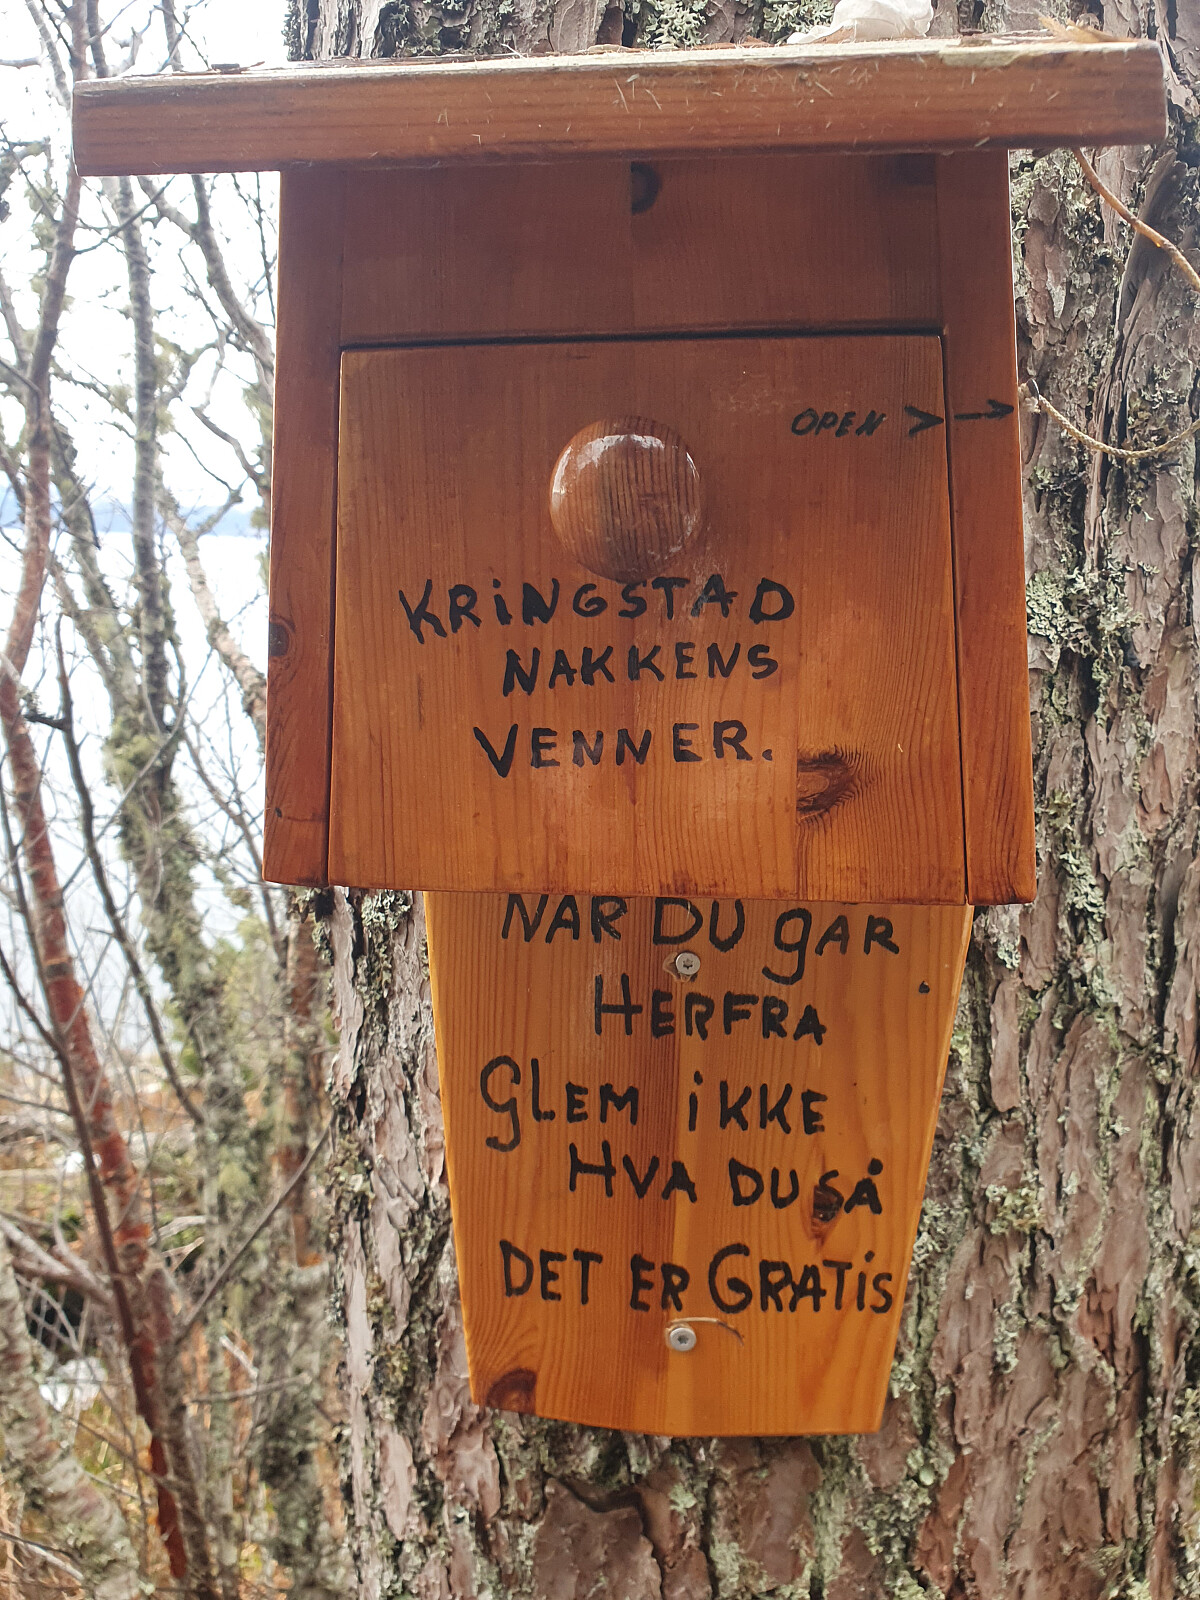 OPEN > →
KRiNGSTAD
NAKKENS
VENNER.
NÅR DU GÅR
HERFRA
GLEM iKKE
HVA DU SÅ
DET ER GRATiS